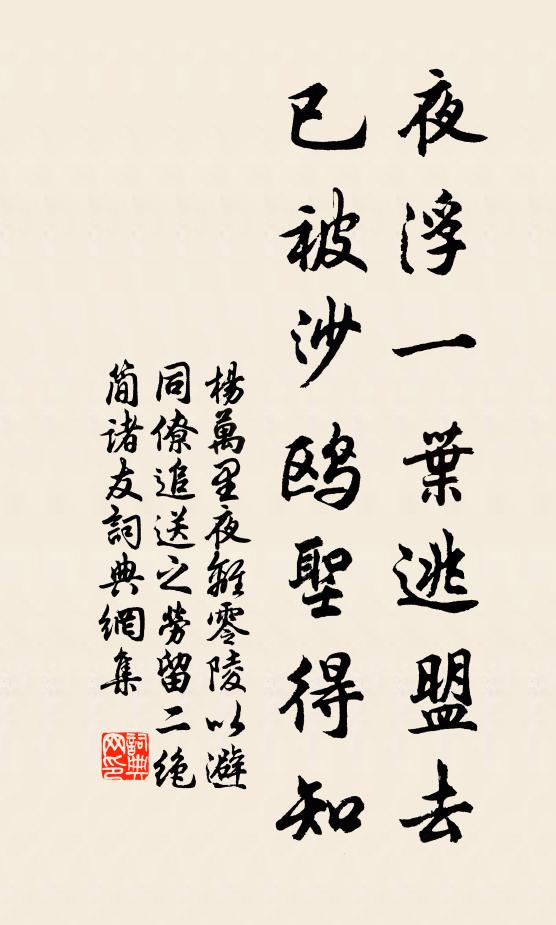 夜浮一葉逃盟去
已被沙鸥聖得知
楊萬里夜離零陵以避
同僚追送之勞留二絶
简诸友詞典網集
詞典
网印